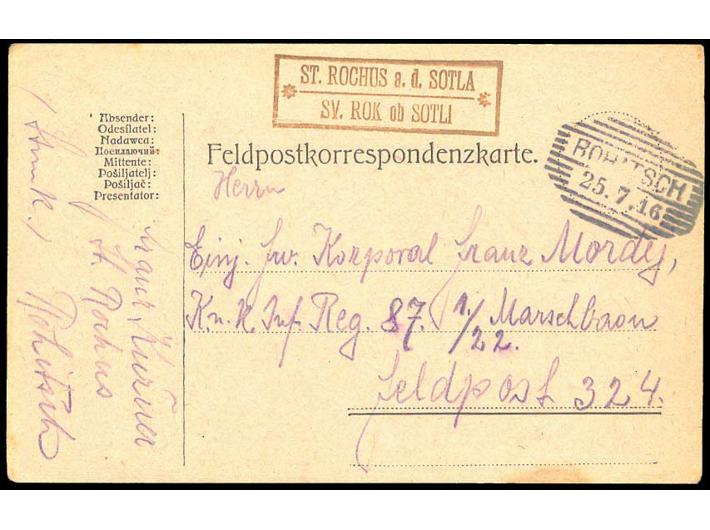 ST. ROCHUS a. d. SOTLA
SV. ROK ob SOTLI
ROHITSCH
25.7.16
Absender:
Odesílatel:
Nadawca:
Посилаючий:
Mittente:
Pošiljatelj:
Pošiljač:
Presentator:
Feldpostkorrespondenzkarte.
Herrn
Einj. frw. Korporal Franz Mordej,
K.u.K. Inf. Reg. 87. 1./22. Marschbaon
Feldpost 324.
Franz
St. Rochus
Rohitsch